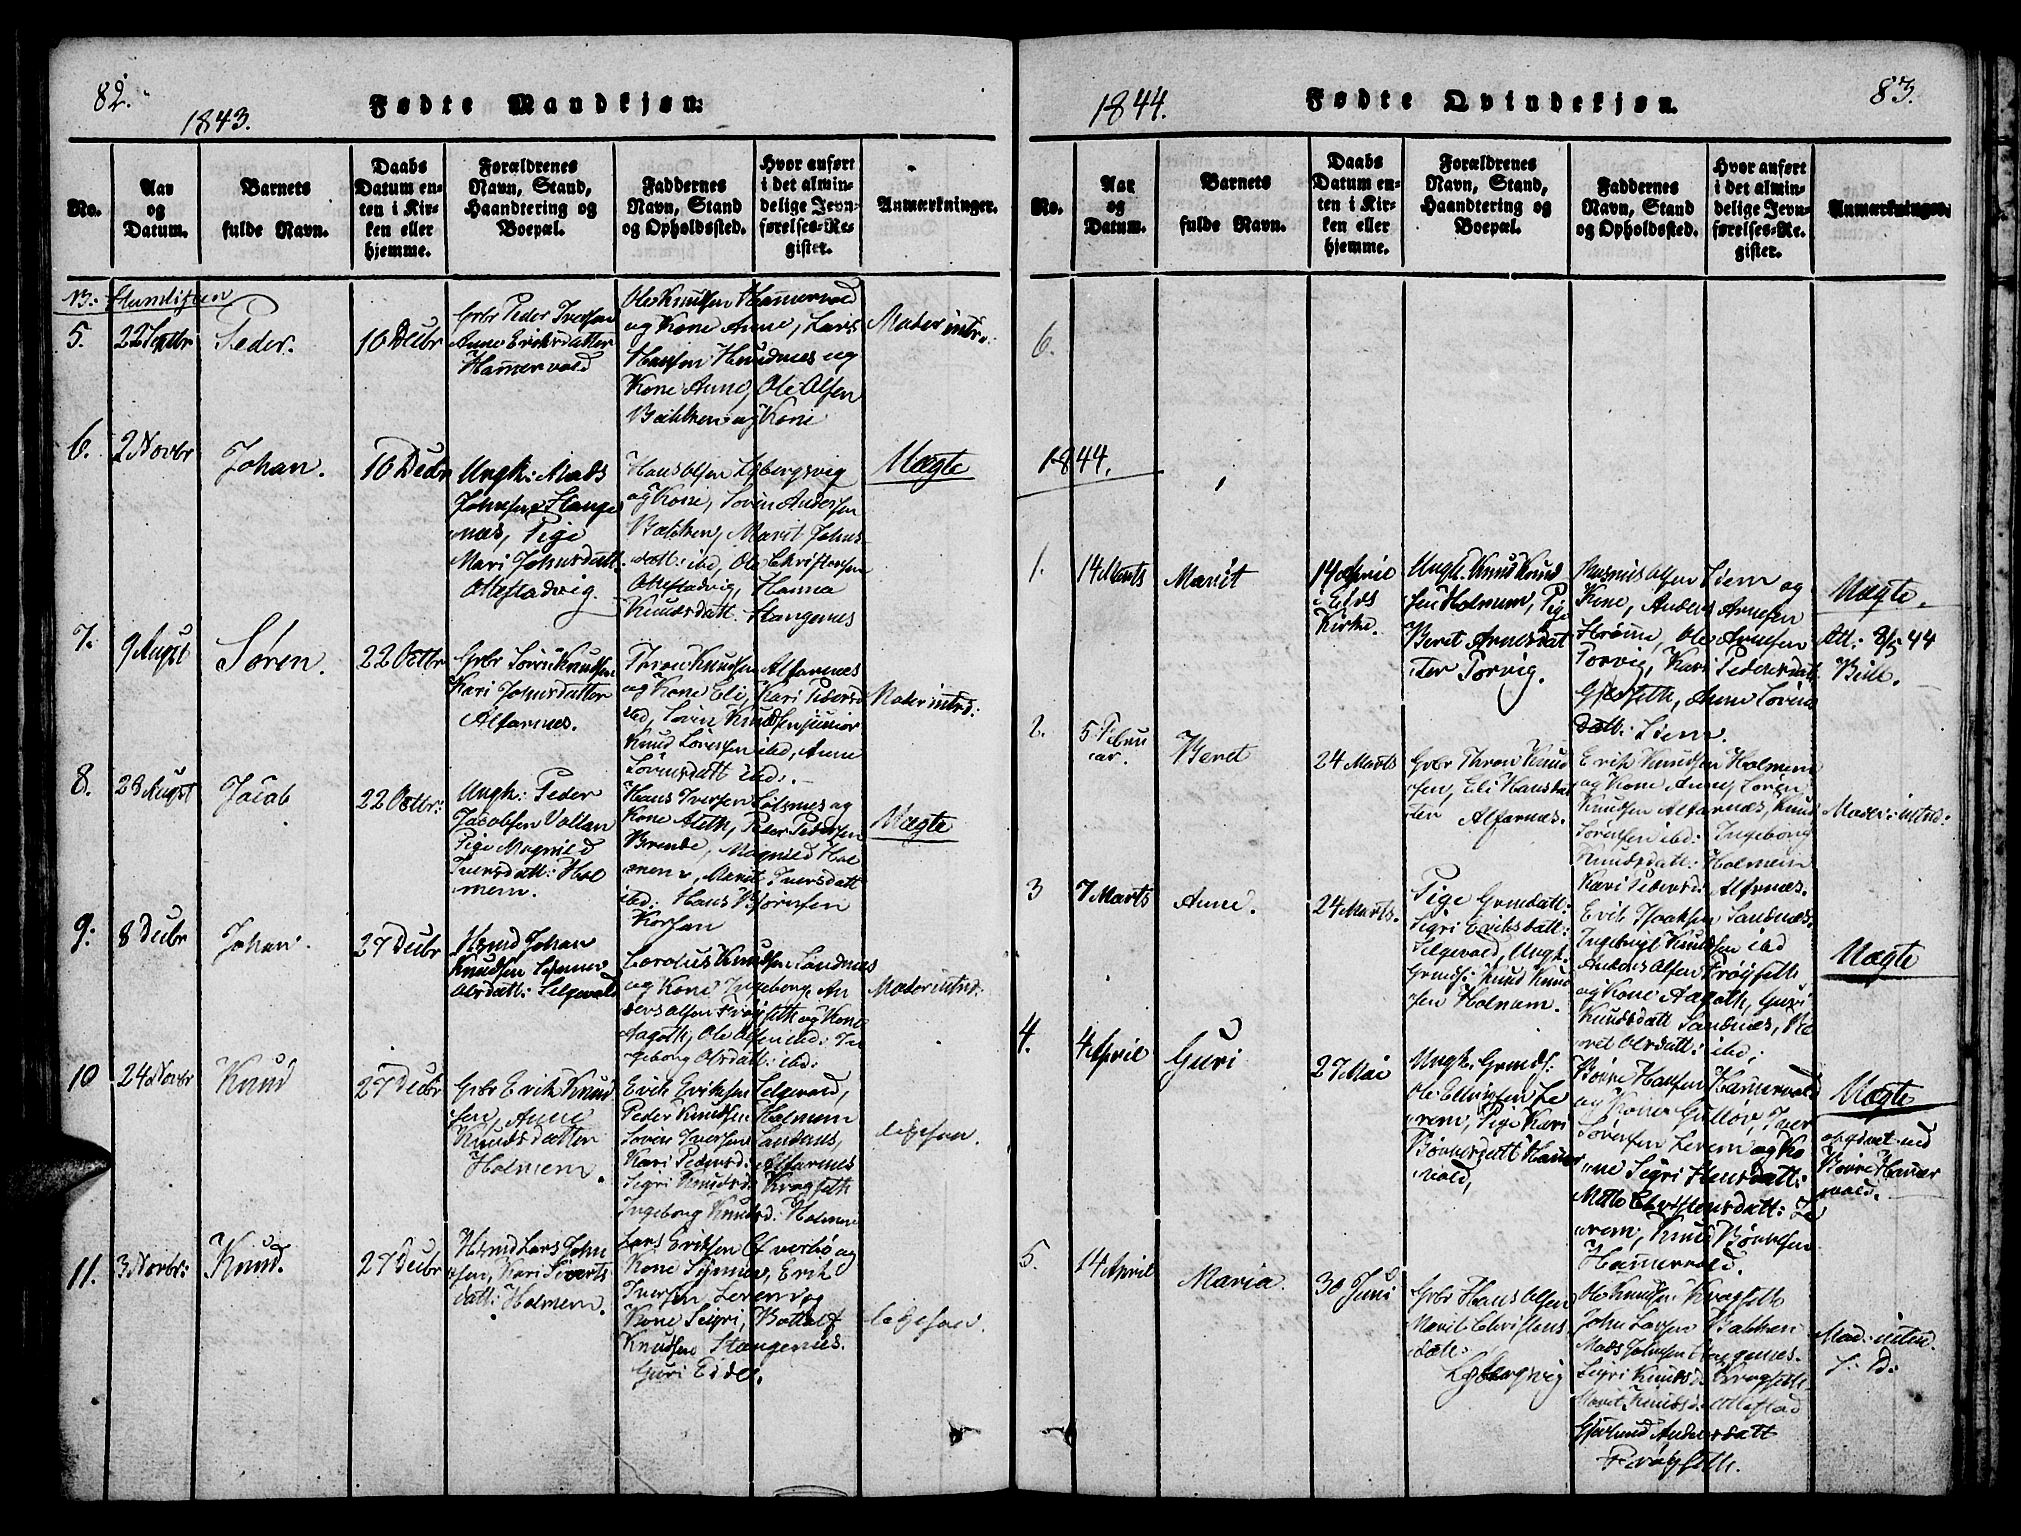 82.
1843.
Fødte Mandkjøn.
No.
Aar og Datum.
Barnets fulde Navn.
Daabs Datum enten i Kirken eller hjemme.
Forældrenes Navn, Stand, Haandtering og Boepæl.
Faddernes Navn, Stand og Opholdssted.
Hvor anført i det almindelige Jevnførelses-Register.
Anmærkninger.
5.
22 Septbr
Peder.
10 Decbr
Grbr Peder Iversen
Anne Eriksdatter
Hamervold
Ole Knudsen Hamervold
og Kone Anne, Lars
Hansen Hundnes og
Kone Anne, Ole Olsen
Bakken og Kone
Moder intr.:
6.
2 Novbr
Johan.
10 Decbr
Ungk: Mads
Johnsen Stange
næs, Pige
Mari Johnsdatt.
Ottestadvig.
Hans Olsen Lybergsvig
og Kone, Søren Andersen
Bakken, Marit Johns
datt: ibd, Ole Christensen
Ottestadvig, Hanna
Knudsdatt. Stangenes
Uægte
7.
9 Augst
Søren.
22 Octbr
Grbr Søren Knudsen
Kari Johnsdatter
Alfarnæs.
Thron Knudsen Alfarnæs
og Kone Eli, Kari Pedersd
ibd, Søren Knudsen junior
Knud Sørensen ibd, Anne
Sørensdatt ibd:
Moder intrd:
8.
28 Augst
Jacob
22 Octbr:
Ungk: Peder
Jacobsen Vollan
Pige Magnild
Iversdatt: Hol
mem.
Hans Iversen Sølsnes og
Kone Aleth, Peder Pedersen
Brende, Magnild Hol
mem, Marit Iversdatt
ibd: Hans Bjørnsen
Korsan
Uægte
9.
8 Decbr
Johan.
27 Decbr
Hsmd Johan
Knudsen Synnev
Olsdatt: Selgevold
Carolus Knudsen Sandnes
og Kone Ingeborg, An
ders Olsen Frøyseth og Kone
Aagoth, Ole Olsen ibd: In
geborg Olsdatt: ibd:
Moder intrd:
10
24 Novbr
Knud
27 Decbr
Grbr Erik Knud
sen, Anne
Knudsdatter
Holmem.
Erik Eriksen Selgevold,
Peder Knudsen Holmem
Søren Iversen Sandnes,
Kari Pedersd: Alfarnes
Sigri Knudsd: Kragseth
Ingeborg Knudsd: Holmem
ligesaa.
11.
3 Novbr:
Knud.
27 Decbr
Hsmd Lars John
sen, Kari Siverts
datt: Holmem.
Lars Eriksen Øverbø og
Kone Synnev, Erik
Iversen Lerem og
Kone Sigri, Bottolf
Knudsen Stangenes.
Guri Eide.
ligesaa.
1844.
Fødte Qvindekjøn.
83.
No.
Aar og Datum.
Barnets fulde Navn.
Daabs Datum enten i Kirken eller hjemme.
Forældrenes Navn, Stand, Haandtering og Boepæl.
Faddernes Navn, Stand og Opholdssted.
Hvor anført i det almindelige Jevnførelses-Register.
Anmærkninger.
6.
1844.
1.
14 Marts
Marit
14 April
i Eids
Kirke.
Ungk. Knud Knud
sen Holmem, Pige
Beret Arnesdat
ter Torvig.
Magnus Olsen Siem og
Kone, Anders Arnesen
Hrømme, Ole Arnesen
Torvig, Kari Pedersdatt
Gjerseth, Anne Sørens
datt: Siem.
Uægte.
Att: 8/5 44
Bill.
2.
5 Febru
ar.
Beret
24 Marts
Grbr Thron Knud
sen, Eli Hansdat
ter Alfarnæs.
Erik Knudsen Holmem
og Kone Anne, Søren
Knudsen Alfarnæs, Knud
Sørensen ibd: Ingeborg
Knudsdatt: Holmem
Kari Pedersd: Alfarnæs.
Moder: intrd:
3
7 Marts
Anne.
24 Marts.
Pige Grmdatt:
Sigri Eriksdatt:
Selgevold, Ungk.
Grmds: Knud Knud
sen Holmem.
Erik Isaksen Sandnæs.
Ingebrigt Knudsen ibd
Anders Olsen Frøyseth
og Kone Aagoth, Guri
Knudsdatt Sandnæs, Be
ret Olsdatt: ibd;
Uægte
4.
4 April
Guri
27 Mai
Ungk. Grmds:
Ole Ellingsen Le
rem, Pige Kari
Børresdatt Hamer
vold,
Børre Hansen Hamervold
og Kone Gulløv, Iver
Sørensen Lerem og Ko
ne Sigri Hansdatt:
Mette Christensdatt: Le
rem, Knud Børresen
Hamervold.
Uægte
opgivet ved
Børre Hamer
vold.
5.
14 April
Maria.
30 Juni
Grbr Hans Olsen
Marit Christens
datt:
Lybergsvig
Ole Knudsen Kragseth
John Larsen Bakken
Mads Johnsen Stangenes.
Sigri Knudsd: Kragseth.
Marit Knudsd: Ottestad
Gjørlund Andersdatt
Frøyseth.
Mod: intrd